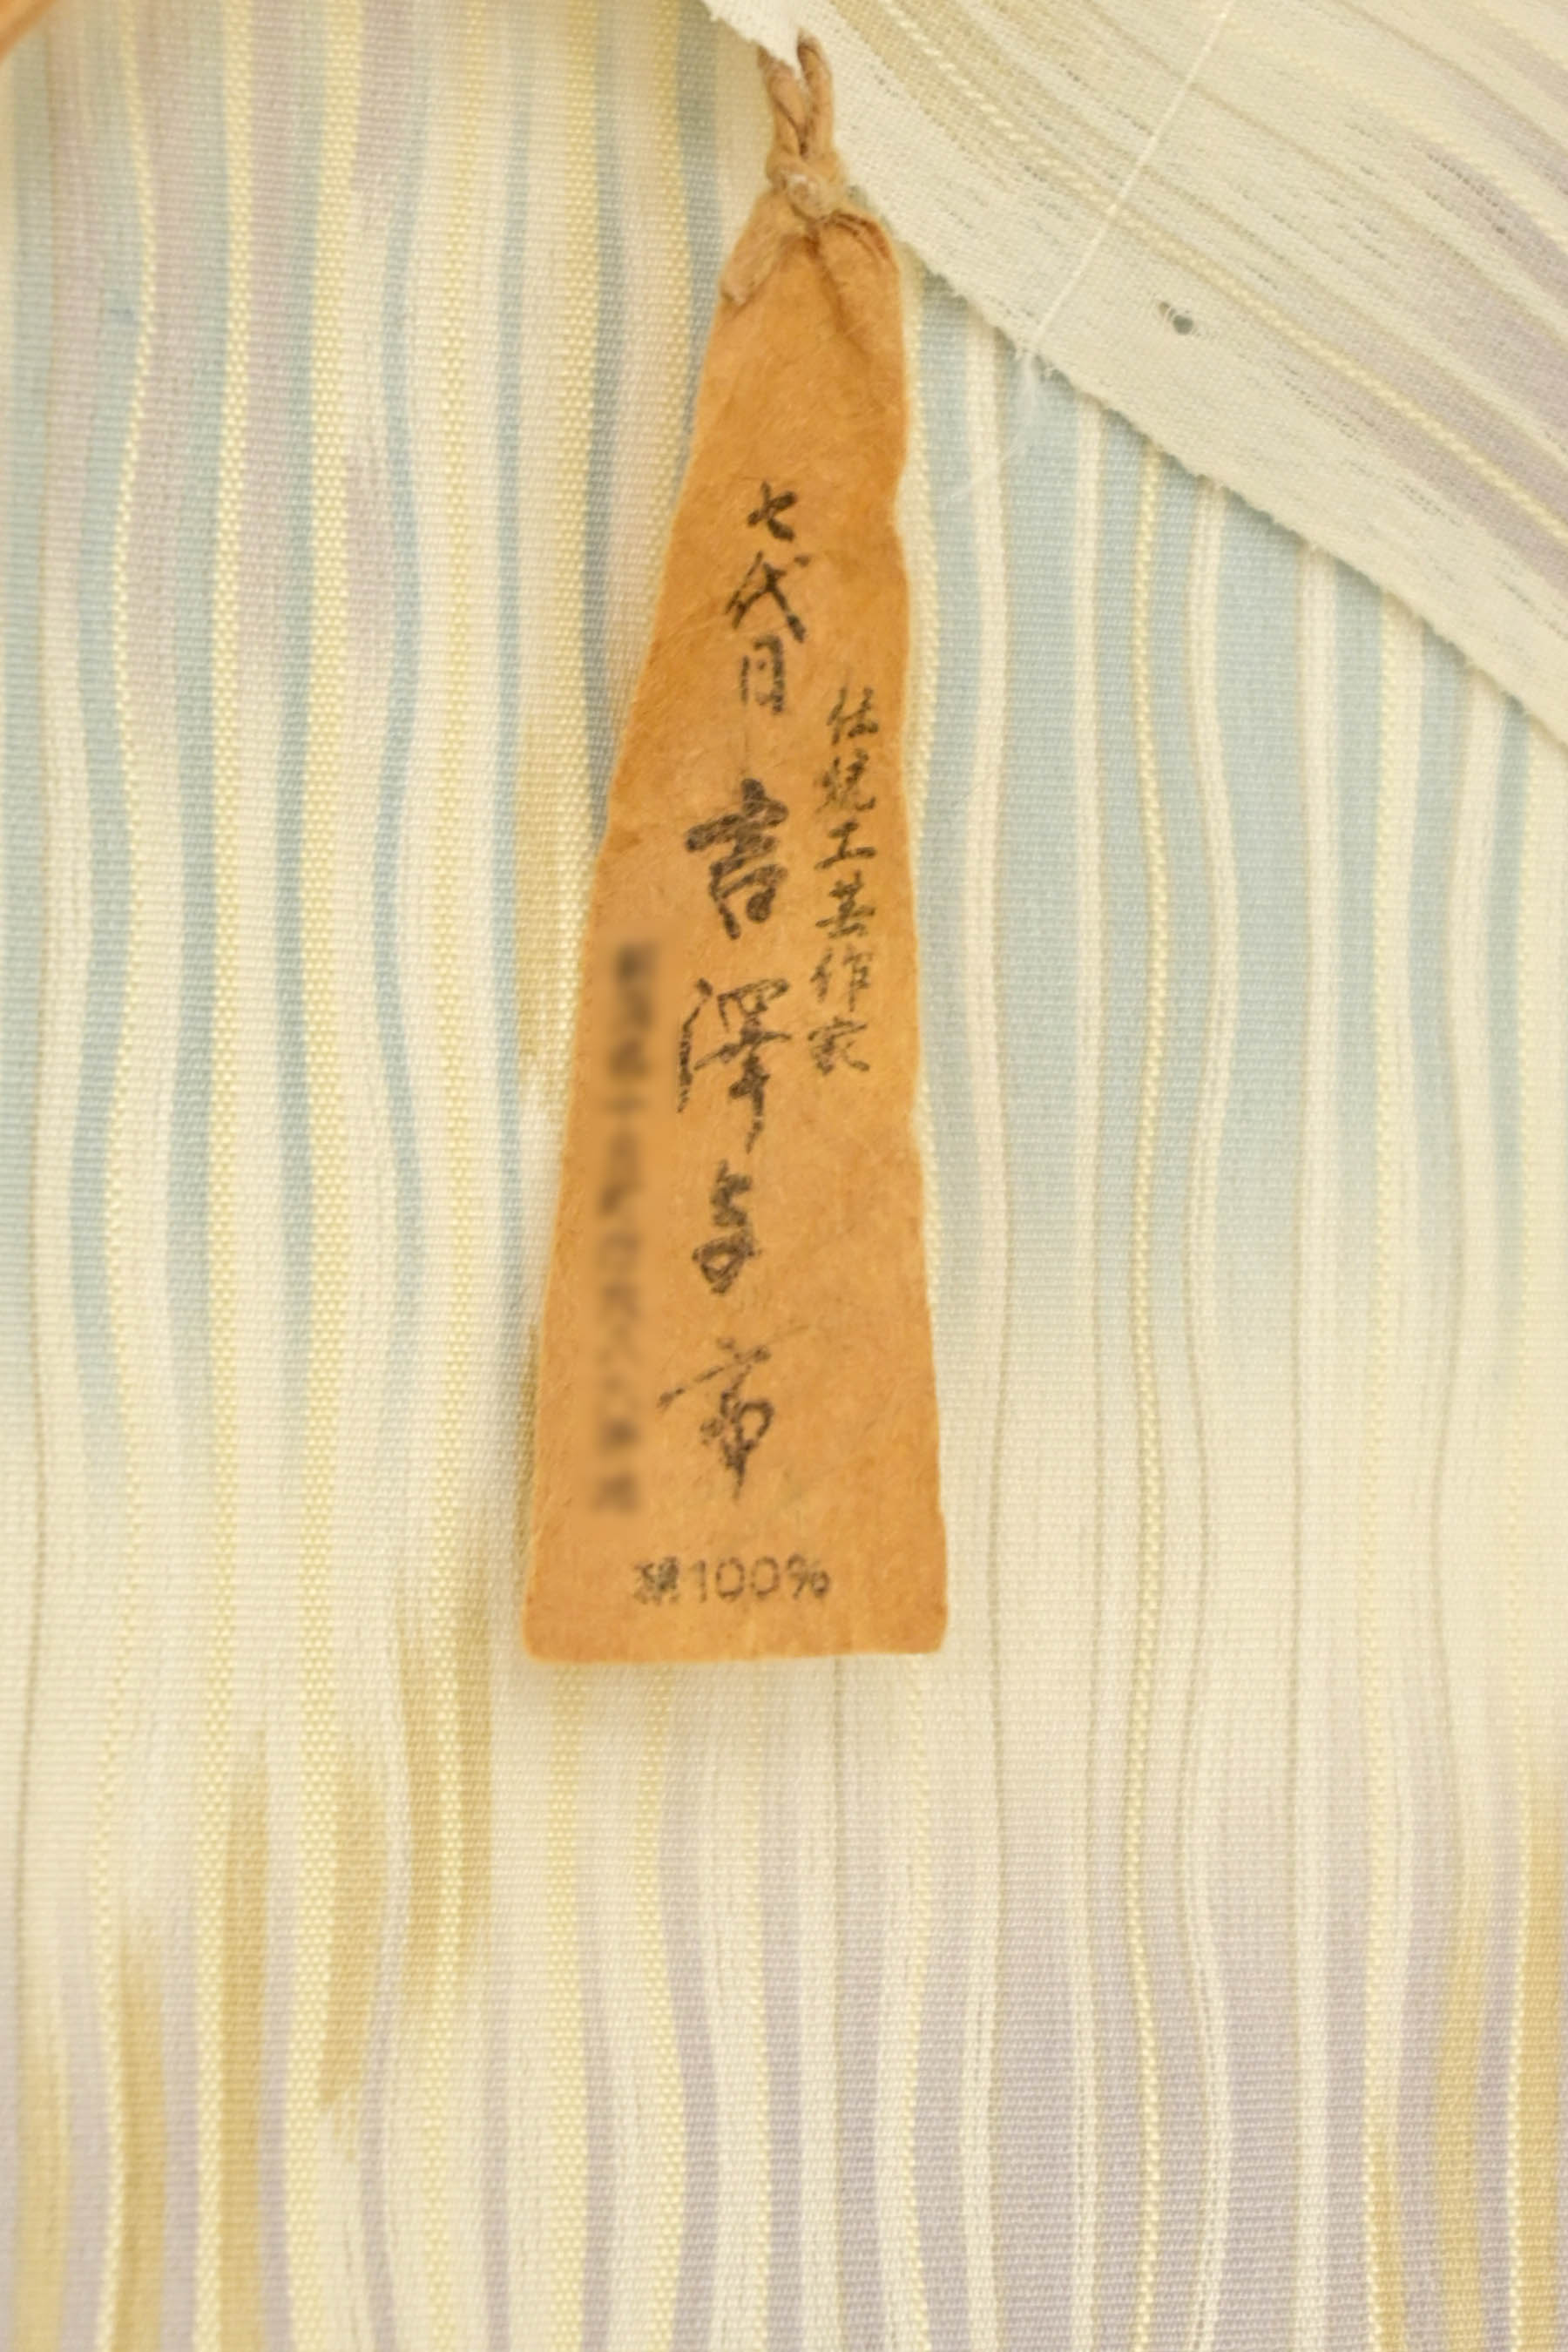 伝統工芸作家
七代目 吉澤与市
絹100%